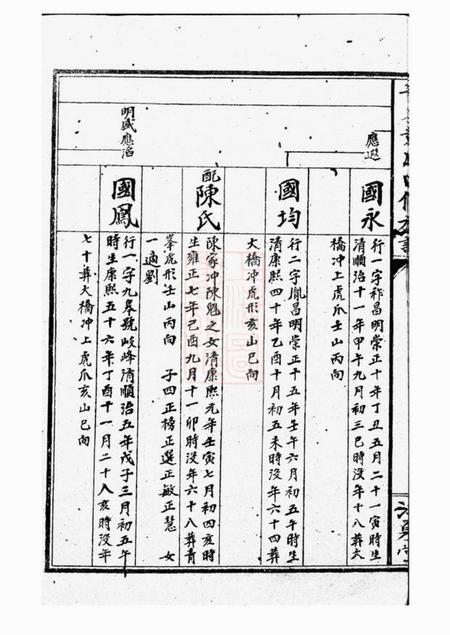 應遐
國永
行一字祚昌明崇正十年丁丑五月二十一寅時生
清順治十一年甲午九月初三巳時沒年十八葬大
橋冲上虎爪壬山丙向
國均
行二字胤昌明崇正十五年壬午六月初五午時生
清康熙四十四年乙酉十月初五未時沒年六十四葬
大橋冲虎形亥山巳向
配陳氏
陳家冲陳魁之女清康熙元年壬寅七月初四亥時
生雍正七年己酉九月十一卯時沒年六十八葬青
峯虎形壬山丙向 子四正榜正選正敏正慧 女
一適劉
明盛應滔
國鳳
行一字九皋號岐峰清順治五年戊子三月初五午
時生康熙五十六年丁酉十一月二十八亥時沒年
七十葬大橋冲上虎爪亥山巳向